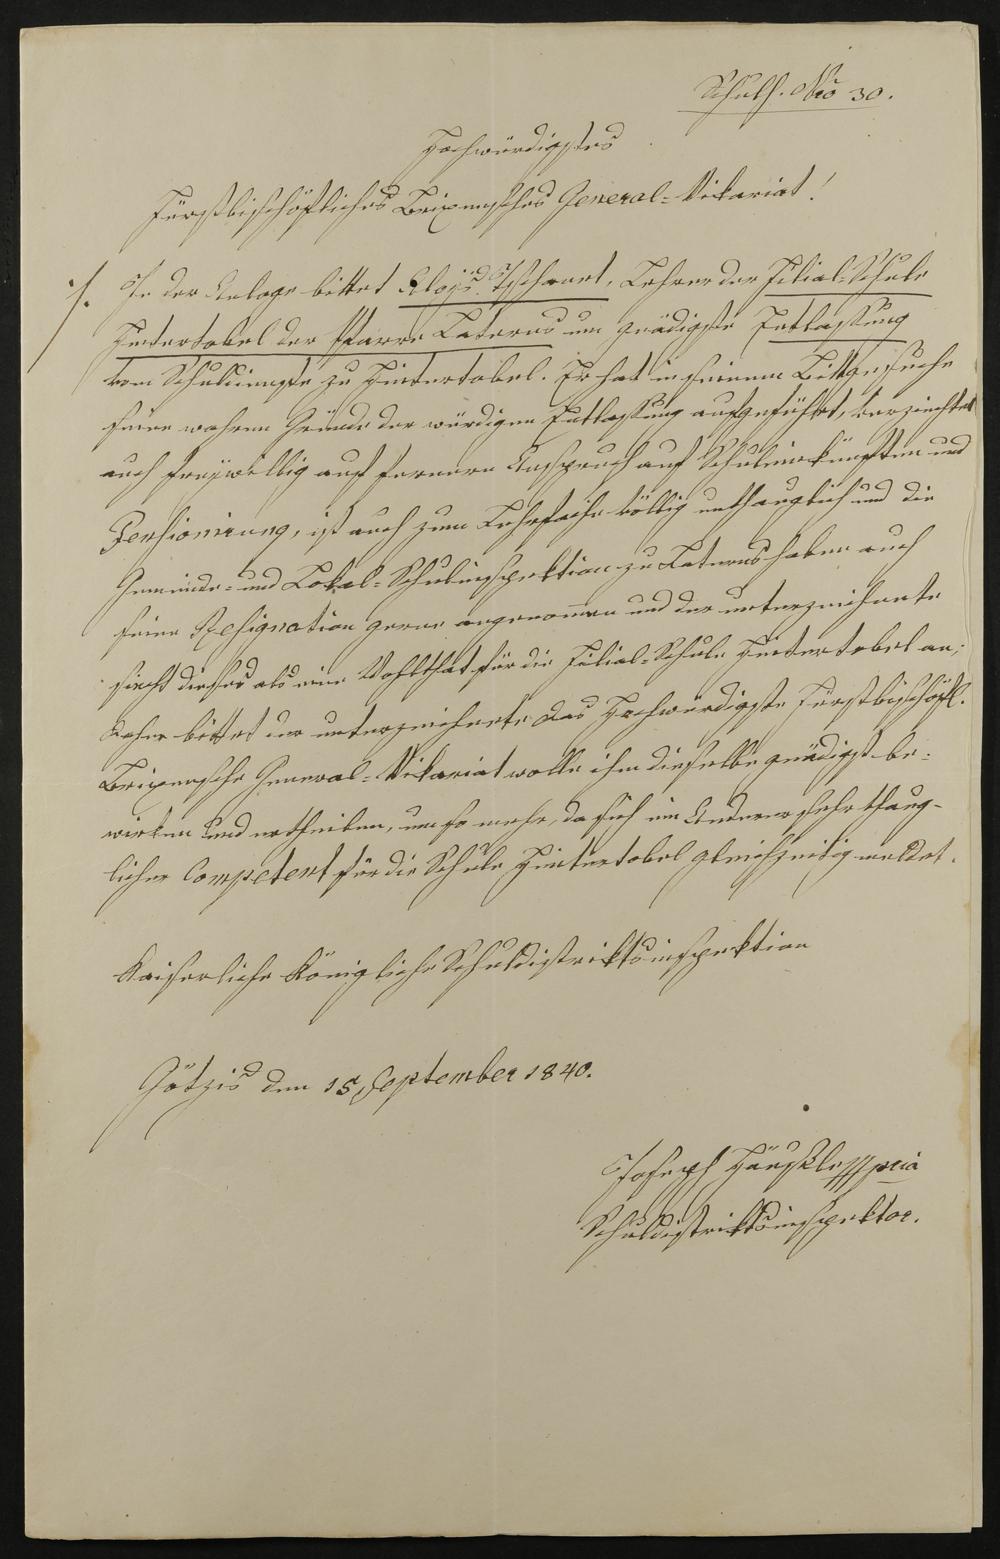 Schuls. Nro 30.
Hochwürdigstes
Fürstbischöfliches Brixensches General-Vikariat!
./. In der Anlage bittet Aloys Tschanet, Lehrer der Filial-Schule
Hintertobel der Pfarre Laterns um gnädigste Entlassung
vom Schuldienste zu Hintertobel. Er hat in seinem Bittgesuche
seine wahren Gründe der würdigen Entlassung aufgeführt, verziechtet
auch freywillig auf fernern Anspruch auf Schuleinkünften und
Pensionirung, ist auch zum Lehrfache völlig unthauglich und die
Gemeinde- und Lokal-Schulinspektion zu Laterns haben auch
seine Resignation gerne angenommen und der unterzeichnete
sieht dieses als eine Wohlthat für die Filial-Schule Hintertobel an;
daher bittet der unterzeichnete das Hochwürdigste Fürstbischöfl.
Brixensche General-Vikariat wolle ihm dieselbe gnädigst be-
wirken und ertheilen, um so mehr, da sich ein Anderer sehr thaug-
licher Competent für die Schule Hintertobel gleichzeitig meldet.
Kaiserliche Königliche Schuldistriktsinspektion
Götzis den 15 September 1840.
Joseph Häusle mpia
Schuldistriktsinspektor.